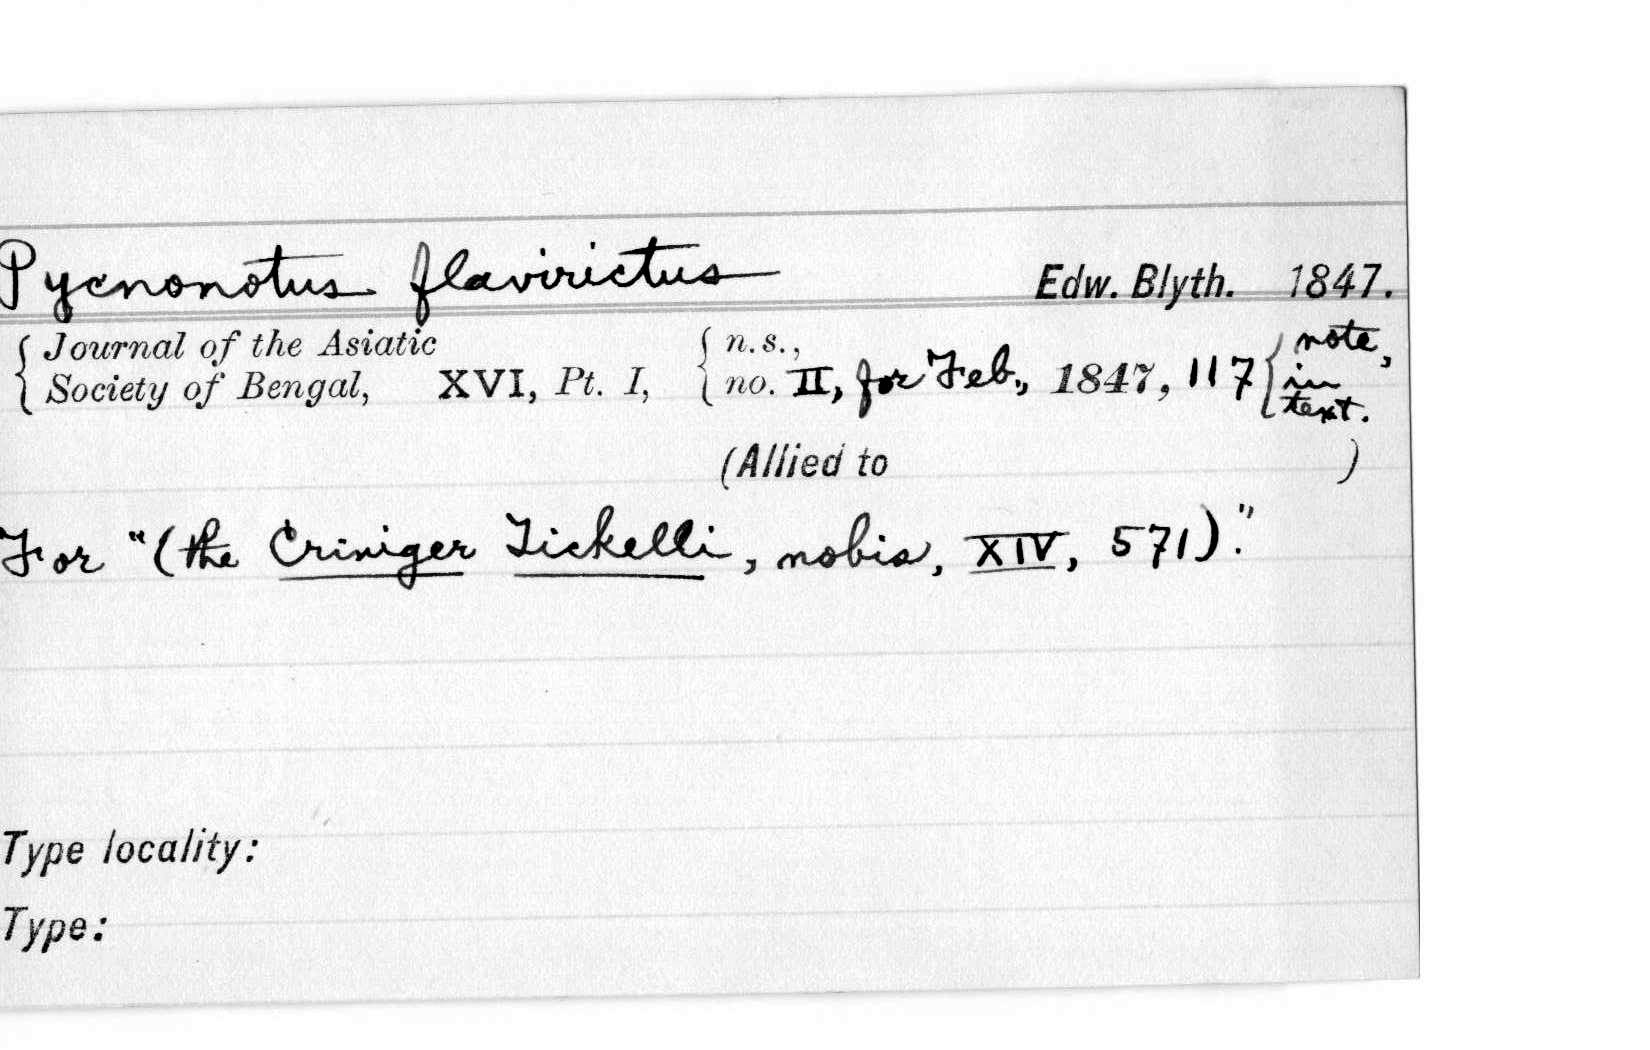 Pycnonotus flavirictus Edw. Blyth. 1847.
{ Journal of the Asiatic { n.s., { note,
{ Society of Bengal, XVI, Pt. I, { no. II, for Feb., 1847, 117 { in
text.
(Allied to )
For "(the Criniger Tickelli, nobis, XIV, 571)."
Type locality:
Type: